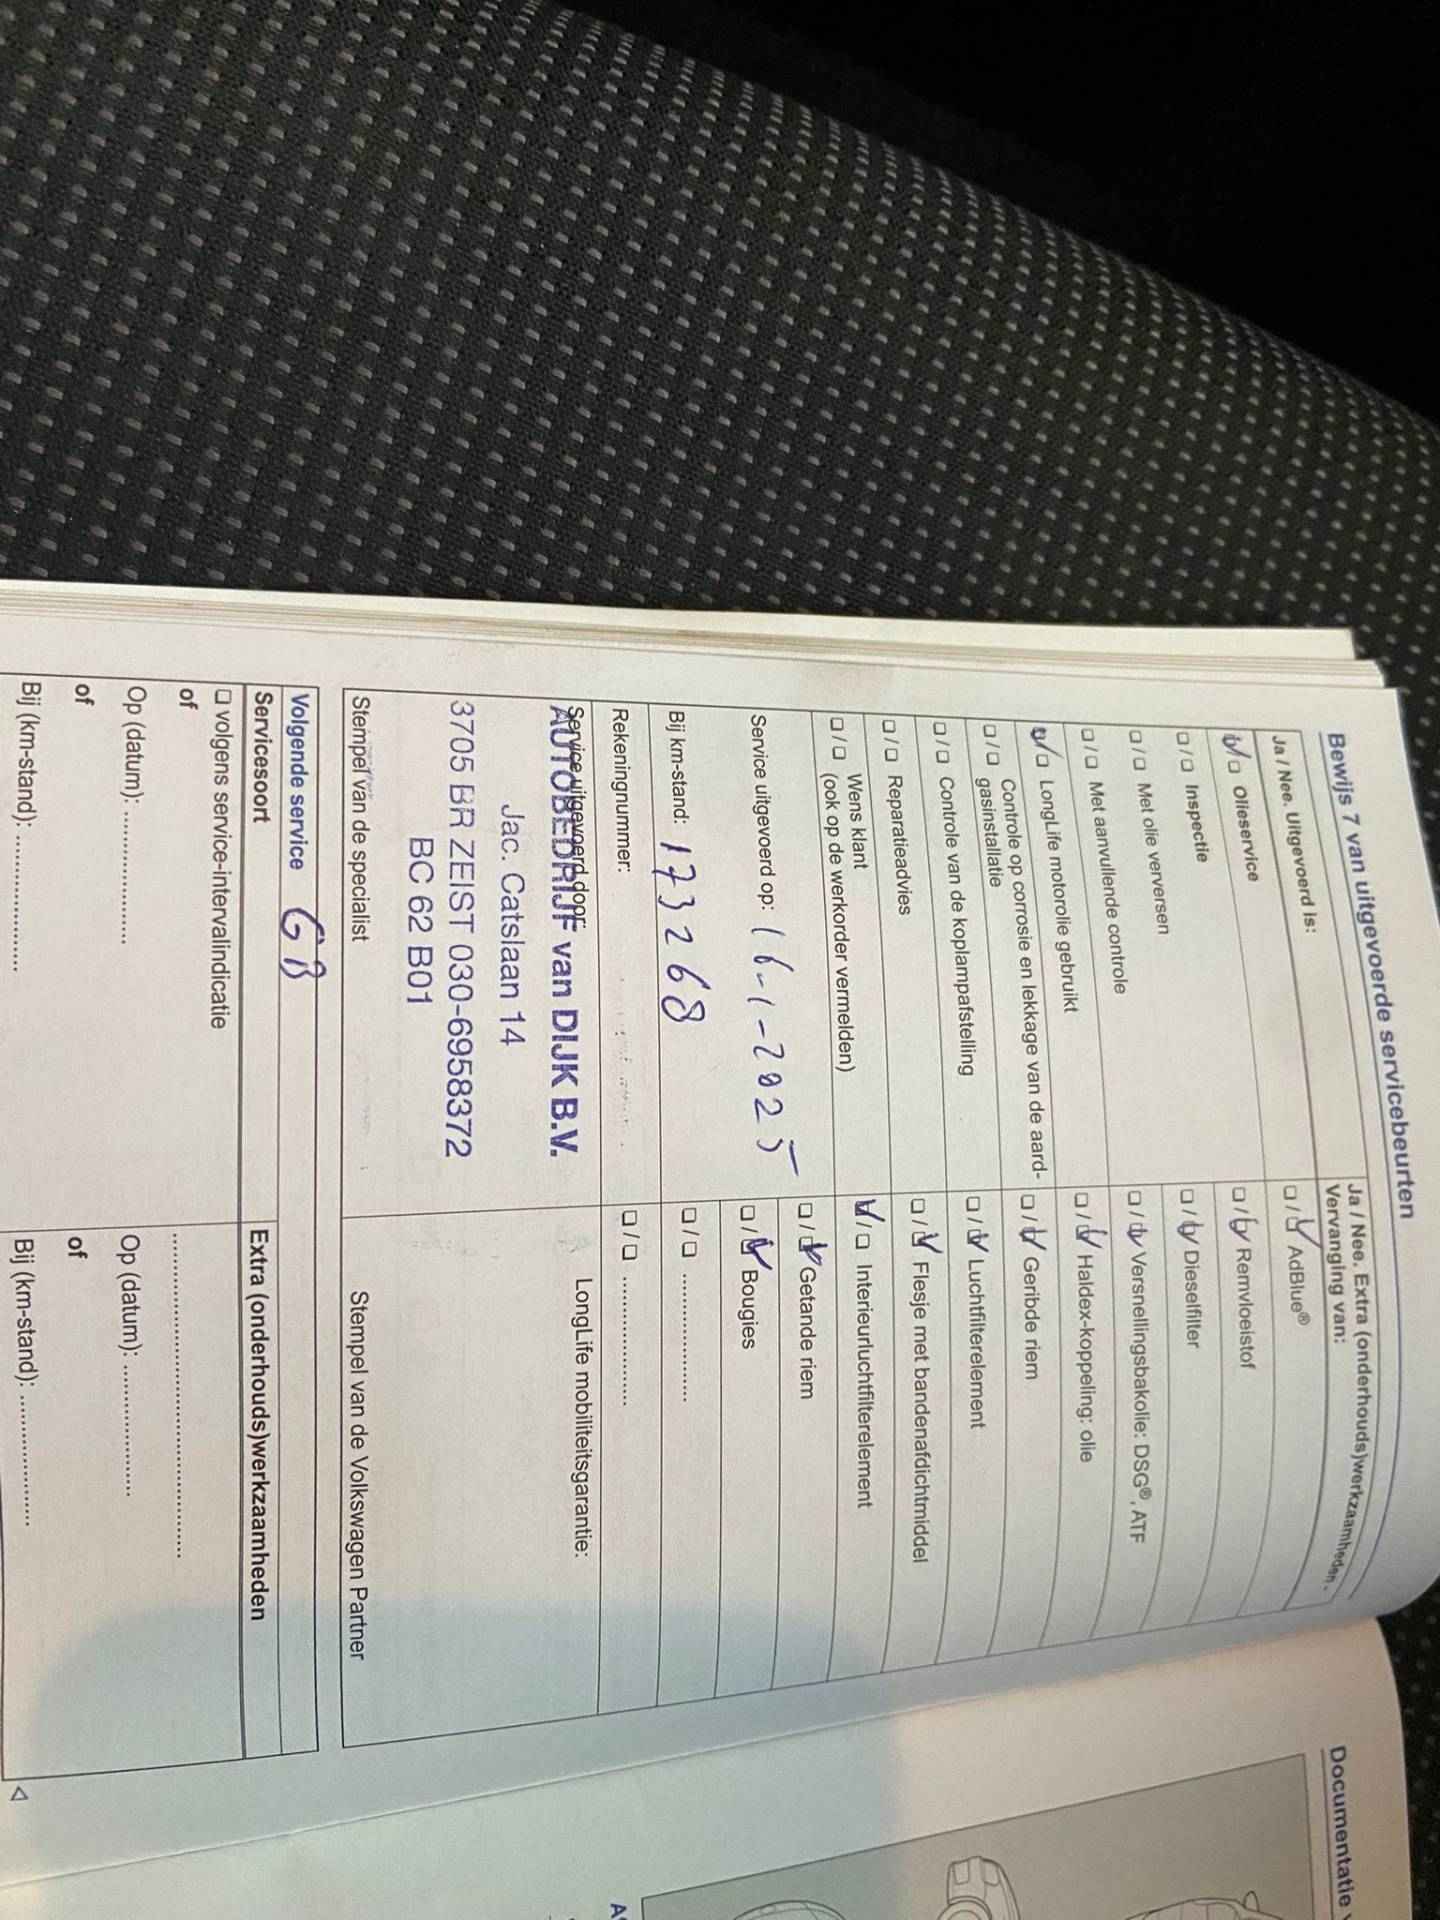 Bewijs 7 van uitgevoerde servicebeurten
Ja / Nee. Uitgevoerd is:
❑ / ❑ Olieservice
❑ / ❑ Inspectie
❑ / ❑ Met olie verversen
❑ / ❑ Met aanvullende controle
❑ / ❑ LongLife motorolie gebruikt
❑ / ❑ Controle op corrosie en lekkage van de aard-
gasinstallatie
❑ / ❑ Controle van de koplampafstelling
❑ / ❑ Reparatieadvies
❑ / ❑ Wens klant
(ook op de werkorder vermelden)
Service uitgevoerd op: 16-1-2025
Bij km-stand: 173268
Rekeningnummer:
Service uitgevoerd door:
AUTOBEDRIJF van DIJK B.V.
Jac. Catslaan 14
3705 BR ZEIST 030-6958372
BC 62 B01
Stempel van de specialist
Ja / Nee. Extra (onderhouds)werkzaamheden.
Vervanging van:
❑ / ❑ AdBlue®
❑ / ❑ Remvloeistof
❑ / ❑ Dieselfilter
❑ / ❑ Versnellingsbakolie: DSG®, ATF
❑ / ❑ Haldex-koppeling: olie
❑ / ❑ Geribde riem
❑ / ❑ Luchtfilterelement
❑ / ❑ Flesje met bandenafdichtmiddel
❑ / ❑ Interieurluchtfilterelement
❑ / ❑ Getande riem
❑ / ❑ Bougies
❑ / ❑ ................
❑ / ❑ ................
LongLife mobiliteitsgarantie:
Stempel van de Volkswagen Partner
Volgende service
Servicesoort
❑ volgens service-intervalindicatie
of
Op (datum): ................
of
Bij (km-stand): ................
Extra (onderhouds)werkzaamheden
........................................
Op (datum): ................
of
Bij (km-stand): ................
Documentatie